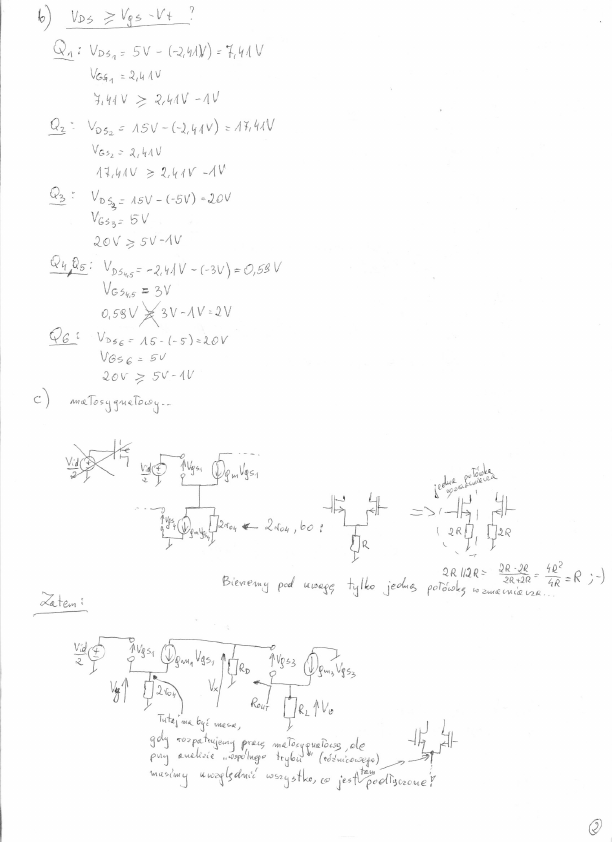 b) VDS ≥ Vgs - Vt ?
Q1: VDS1 = 5V - (-2,41V) = 7,41V
VGS1 = 2,41V
7,41V ≥ 2,41V - 1V
Q2: VDS2 = 15V - (-2,41V) = 17,41V
VGS2 = 2,41V
17,41V ≥ 2,41V - 1V
Q3: VDS3 = 15V - (-5V) = 20V
VGS3 = 5V
20V ≥ 5V - 1V
Q4,Q5: VDS4,5 = -2,41V - (-3V) = 0,59V
VGS4,5 = 3V
0,59V ≥ 3V - 1V = 2V
Q6: VDS6 = 15 - (-5) = 20V
VGS6 = 5V
20V ≥ 5V - 1V
c) małosygnałowy...
Vid/2
Vid/2 Vgs1 gm Vgs1
2ro4 ← 2ro4, bo:
R
=>
jedna połówka wzmacniacza
2R 2R
2R||2R = 2R·2R/2R+2R = 4R²/4R = R ;-)
Bierzemy pod uwagę tylko jedną połówkę wzmacniacza...
Zatem:
Vid/2 Vgs1 gm1 Vgs1 RD Vgs3 gm3 Vgs3
2ro4 Vx ROUT RL Vo
Tutaj ma być masa,
gdy rozpatrujemy pracę małosygnałową, ale
przy analizie "wspólnego trybu" (różnicowego)
musimy uwzględnić wszystko, co jest tam podłączone!
2